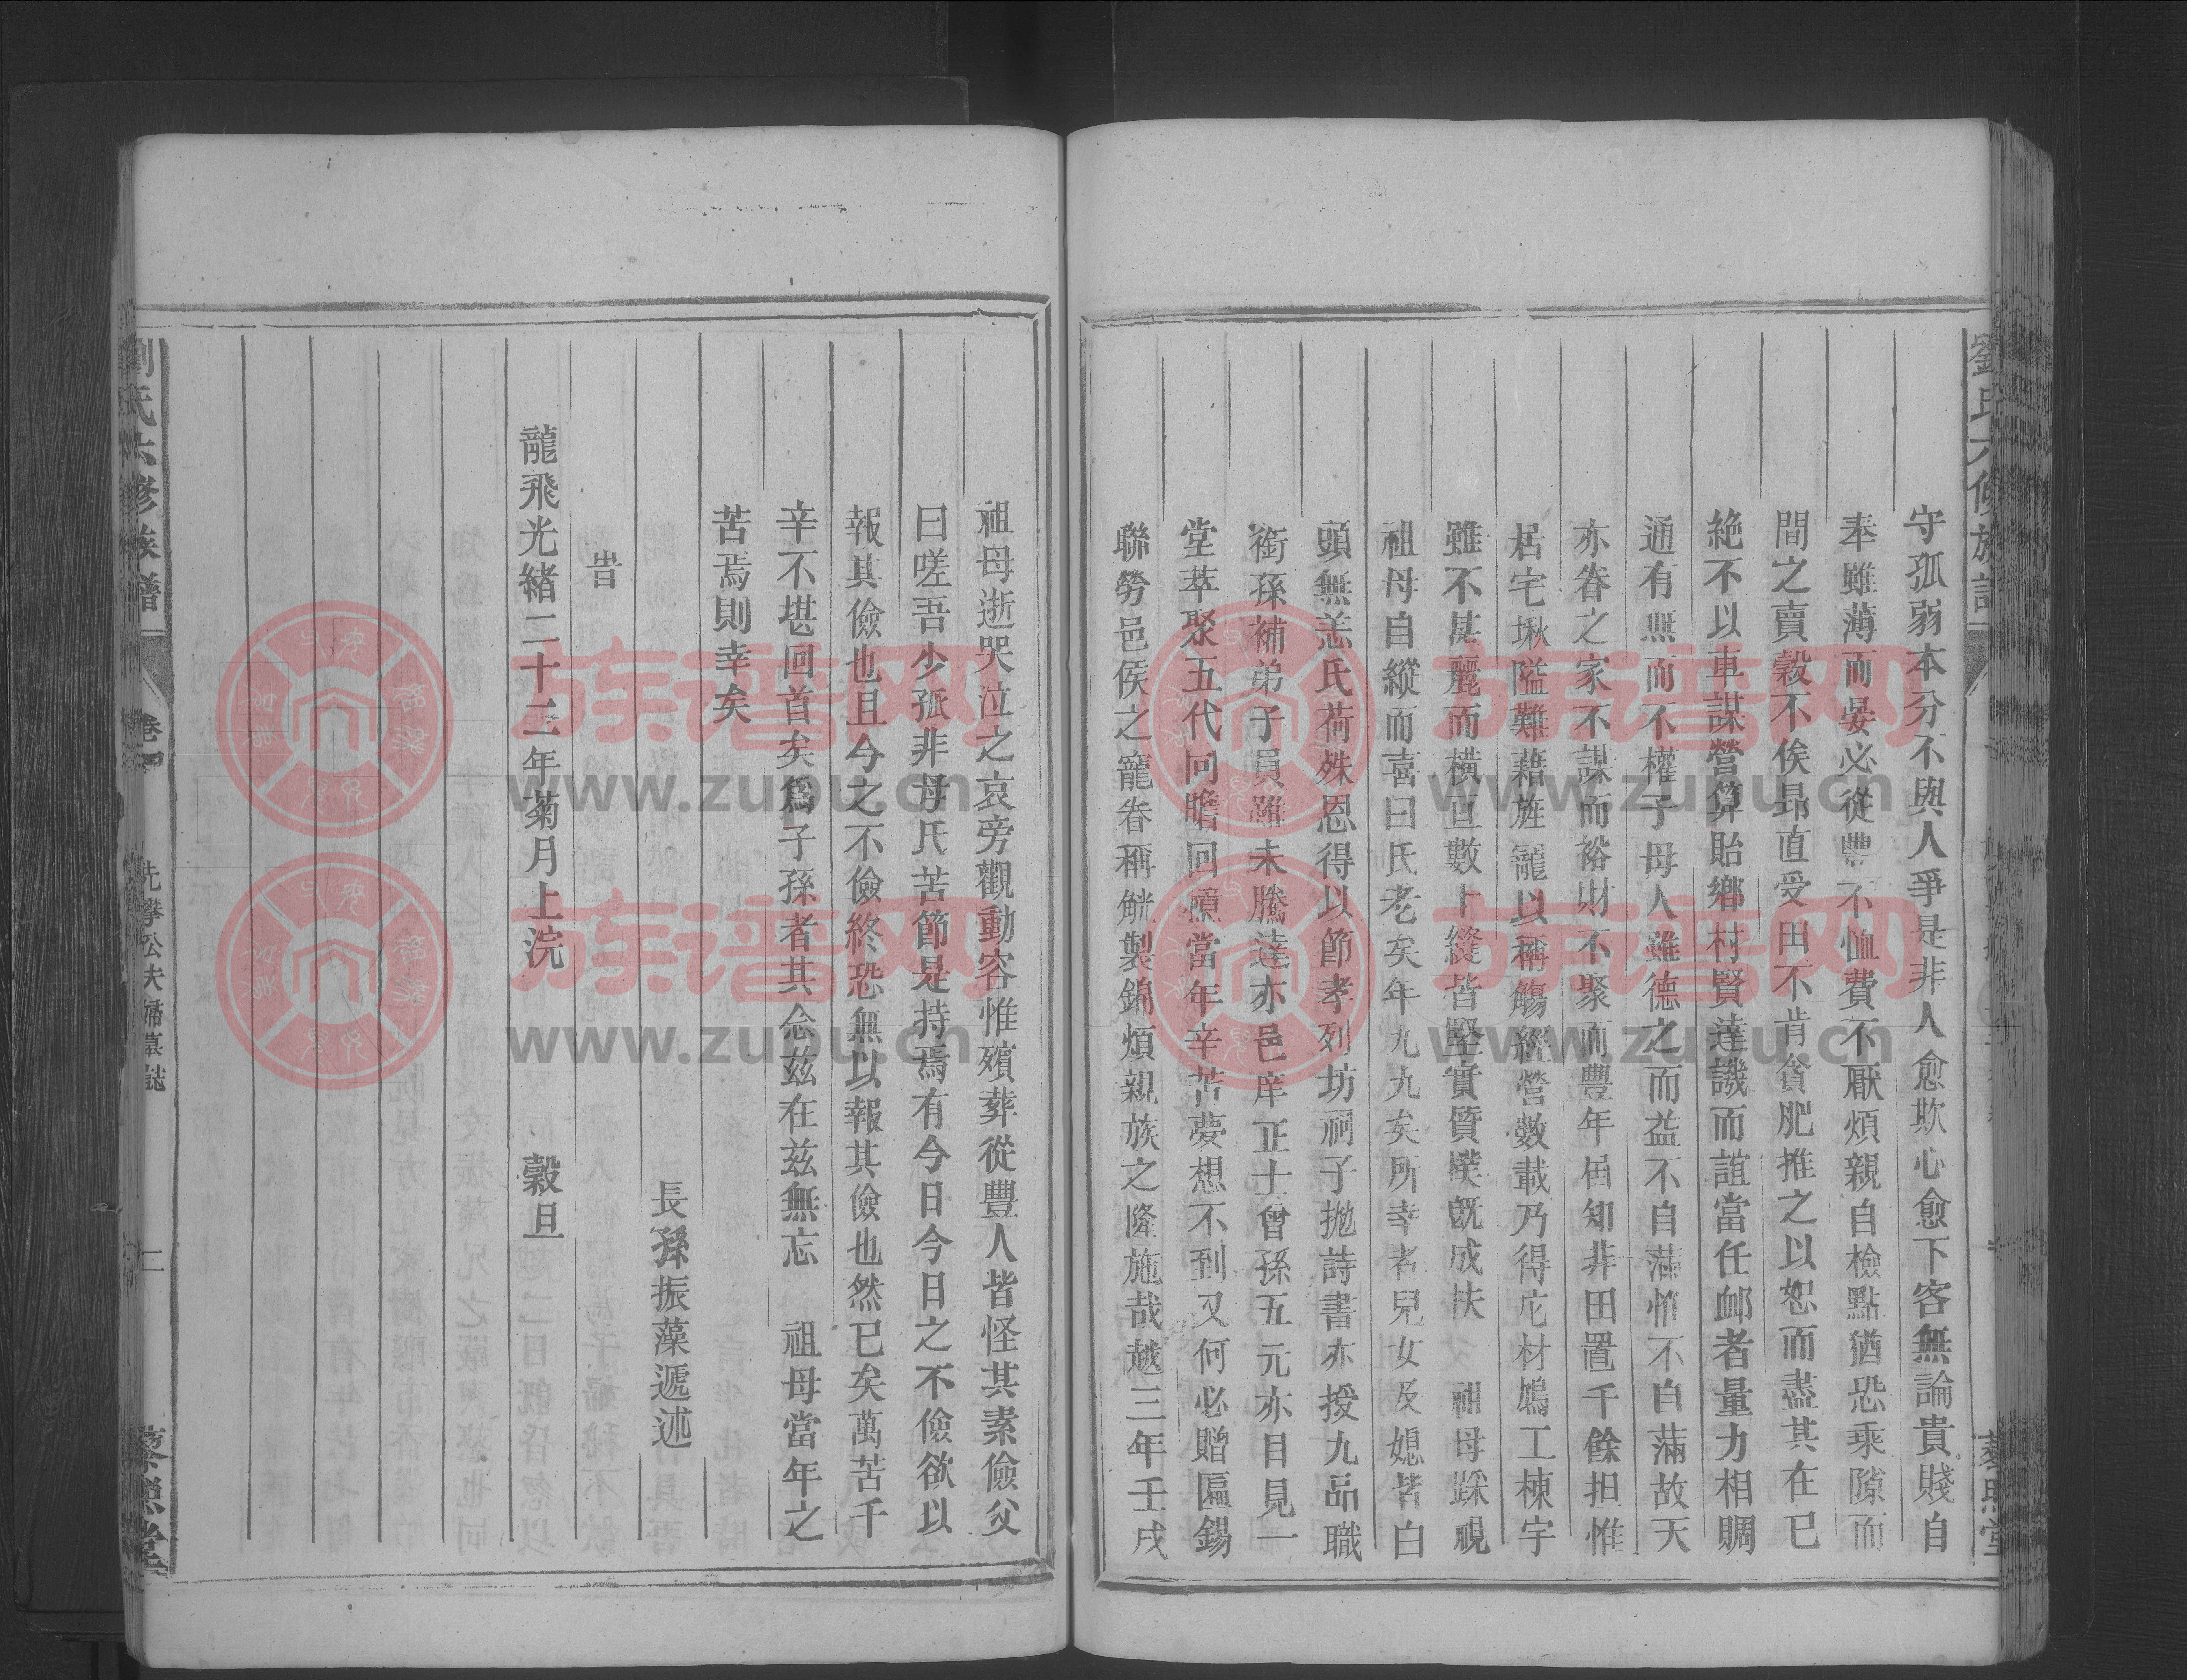 守孤弱本分不與人爭是非人愈欺心愈下客無論貴賤自
奉雖薄而宴必從豐不恤費不厭煩親自檢點猶恐乘隙而
間之賣穀不俟昻直受田不肯貪肥推之以恕而盡其在已
絶不以車謀營算貽鄉村賢達譏而誼當任邮者量力相賙
通有無而不權子母人雖德之而益不自滿惟不自滿故天
亦眷之家不謀而裕財不聚而豐年屆知非田置千餘担惟
居宅堠隘難藉旌寵以稱觴經營數載乃得庀材鳩工棟宇
雖不甚麗而橫亘數十縫皆堅實質樸旣成扶 祖母踩視
祖母自縱而喜曰氏老矣年九九矣所幸者兒女及媳皆白
頭無恙氏荷殊恩得以節孝列坊祠子拋詩書亦授九品職
銜孫補弟子員雖未騰達亦邑庠正士曾孫五元亦目見一
堂萃聚五代同瞻回憶當年辛苦夢想不到又何必贈匾錫
聯勞邑侯之寵眷稱觥製錦煩親族之隆施哉越三年壬戌
祖母逝哭泣之哀旁觀動容惟殯葬從豐人皆怪其素儉父
曰嗟吾少孤非母氏苦節是持焉有今日今日之不儉欲以
報其儉也且今之不儉終恐無以報其儉也然已矣萬苦千
辛不堪回首矣爲子孫者其念茲在茲無忘 祖母當年之
苦焉則幸矣
長孫振藻遞述
旹
龍飛光緒二十三年菊月上浣 穀旦
劉氏六修族譜
卷十
先擧公夫婦墓誌
二
藜照堂
族谱网
www.zupu.cn
族谱网
www.zupu.cn
族谱网
www.zupu.cn
族谱网
www.zupu.cn